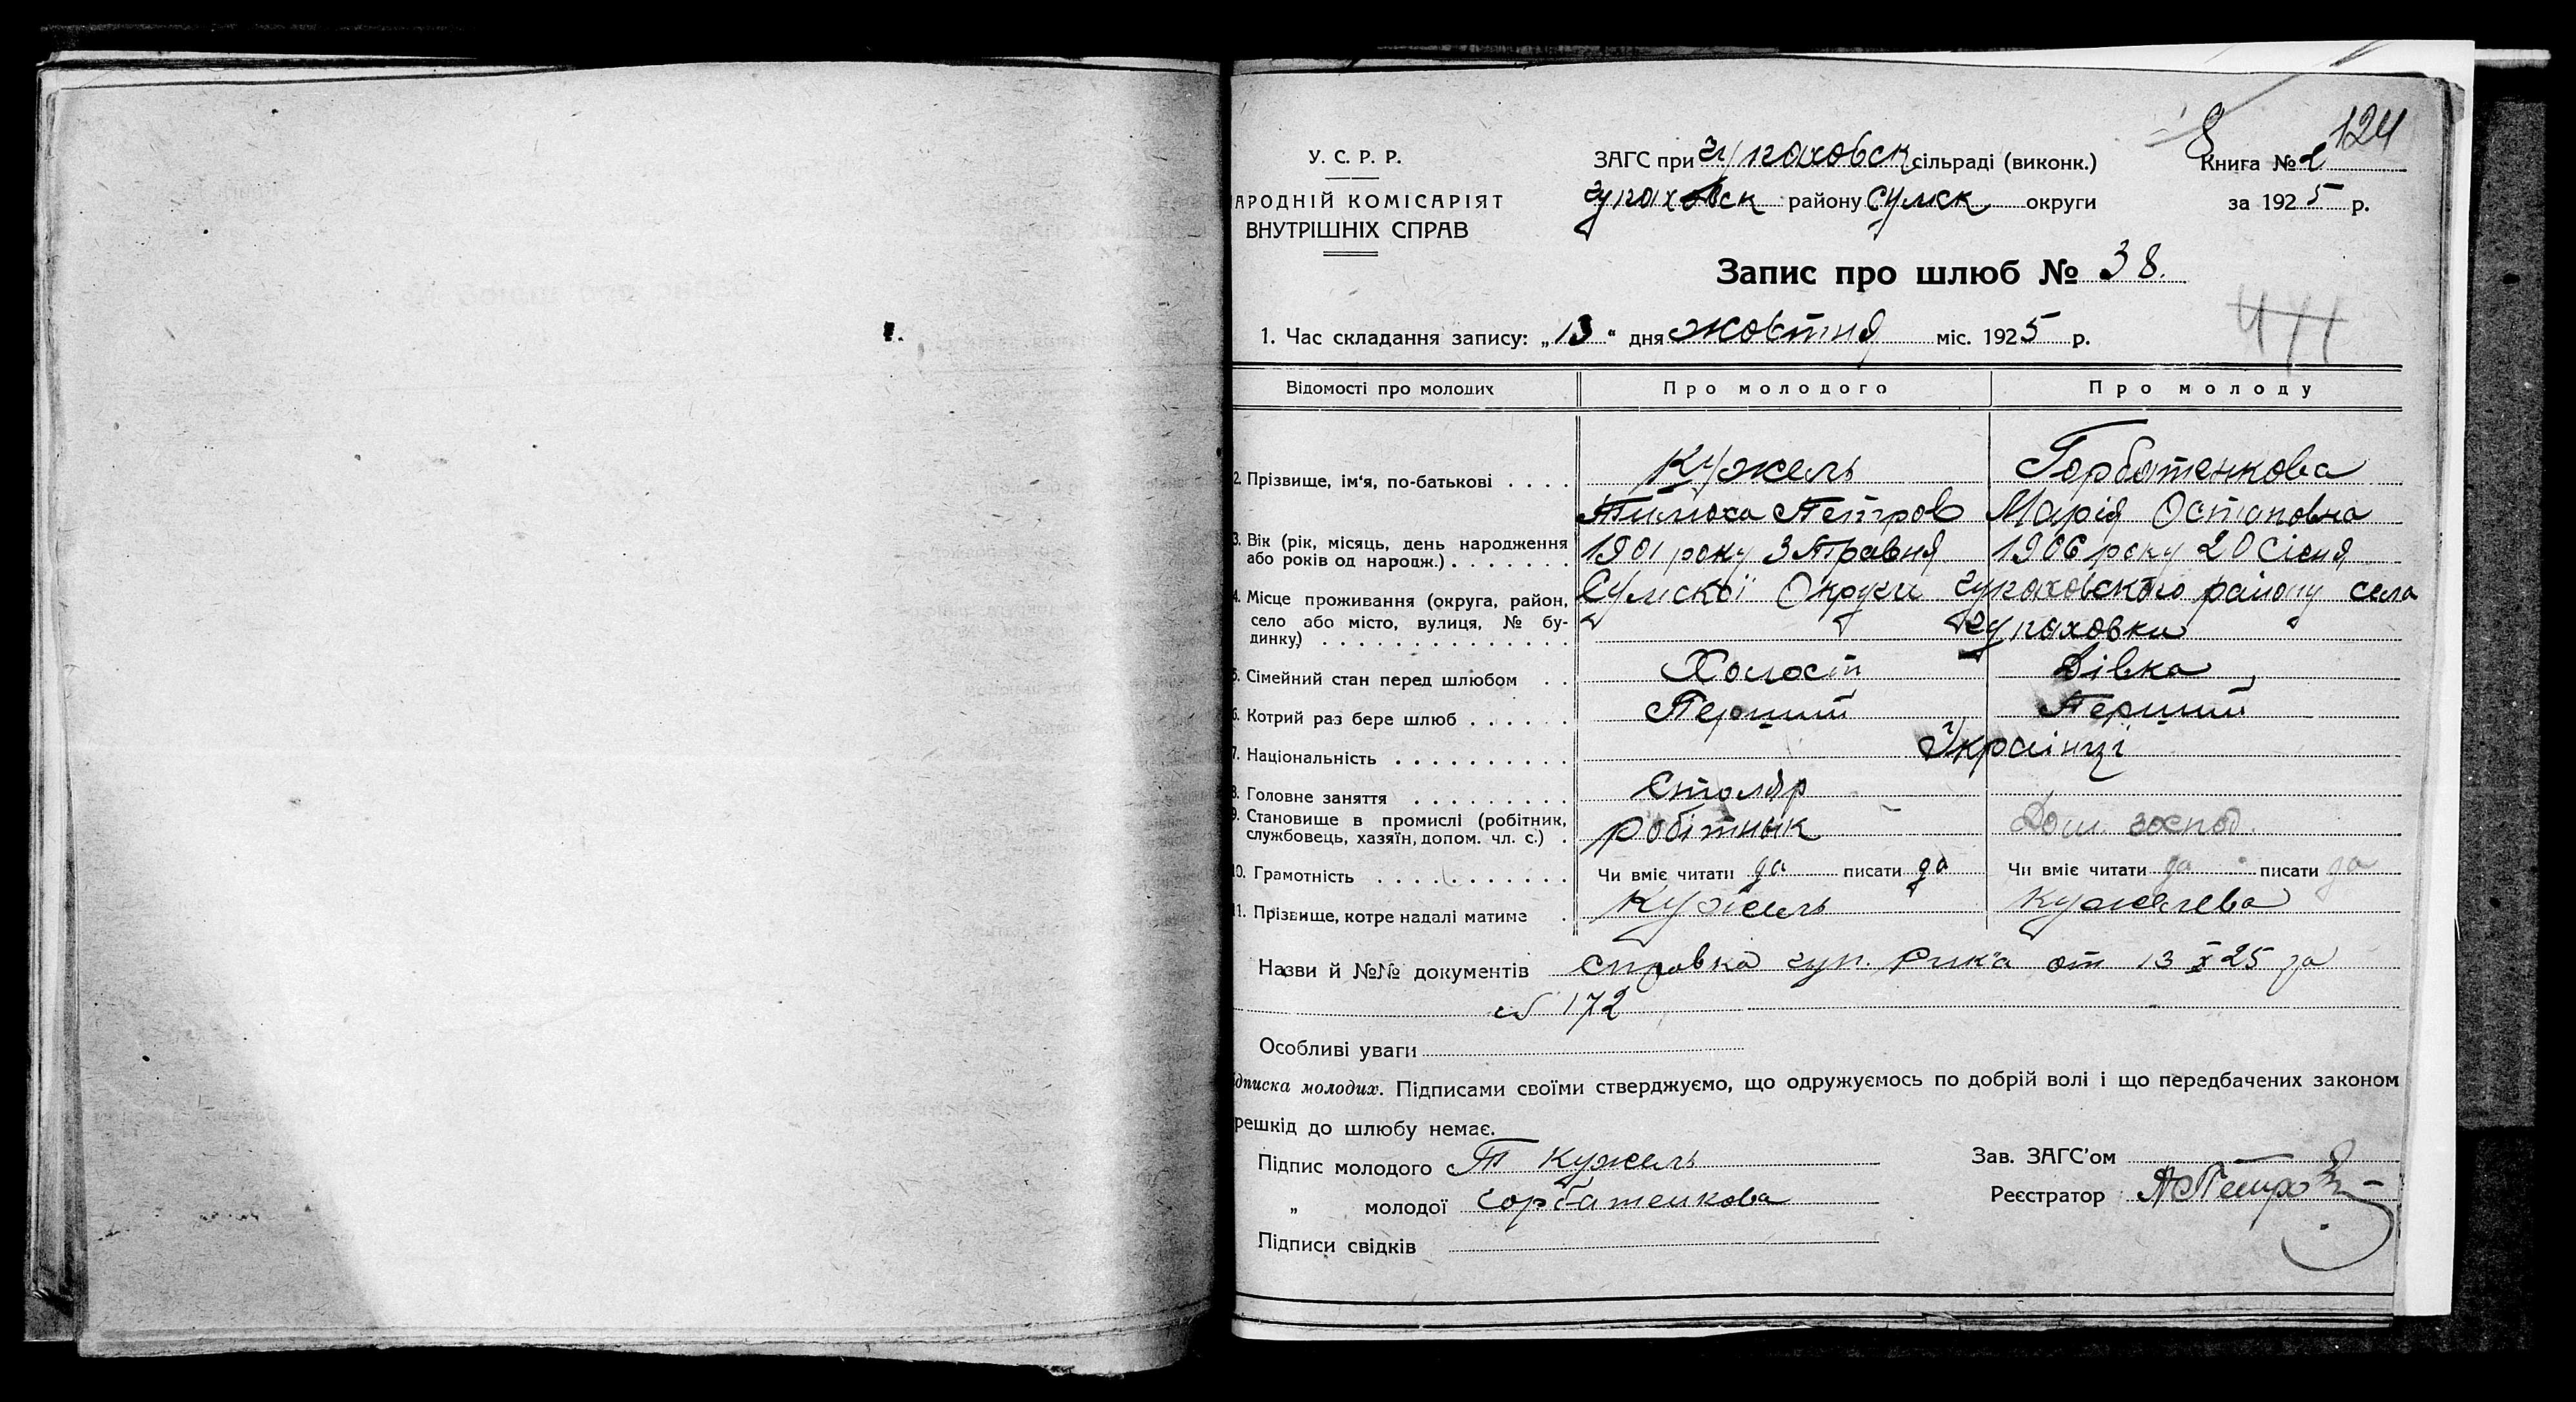 124
8
У. С. Р. Р.
ЗАГС при гупаховск сільраді (виконк.)
Книга № 2
АРОДНІЙ КОМІСАРІЯТ
гупаховск району Сумск округи
за 1925 р.
ВНУТРІШНІХ СПРАВ
Запис про шлюб № 38.
1. Час складання запису: „13“ дня жовтня міс. 1925 р.
Відомості про молодих Про молодого Про молоду
2. Прізвище, ім'я, по-батькові . . . . Кужель Горбатенкова
Тимоха Петров Марія Остаповна
3. Вік (рік, місяць, день народження
або років од народж.) . . . . . . . 1901 року 3 Травня 1906 року 20 Сісня
4. Місце проживання (округа, район, Сумскої Округи гупаховського району села
село або місто, вулиця, № бу-
динку) . . . . . . . . . . . . . . гупаховки
5. Сімейний стан перед шлюбом . . Холост Дівка
6. Котрий раз бере шлюб . . . . . . Перший Перший
7. Національність . . . . . . . . . . Украінці
8. Головне заняття . . . . . . . . . Столяр
9. Становище в промислі (робітник,
службовець, хазяїн, допом. чл. с.) . робітнык Дом. господ.
10. Грамотність . . . . . . . . . . Чи вміє читати да писати да Чи вміє читати да писати да
11. Прізвище, котре надалі матиме . Кужель Кужелева
Назви й №№ документів справка гуп. Рик'а от 13 X 25 за
№ 172
Особливі уваги
ідписка молодих. Підписами своїми стверджуємо, що одружуємось по добрій волі і що передбачених законом
решкід до шлюбу немає.
Підпис молодого Т Кужель
Зав. ЗАГС'ом
„ молодої Горбатенкова
Реєстратор
Підписи свідків